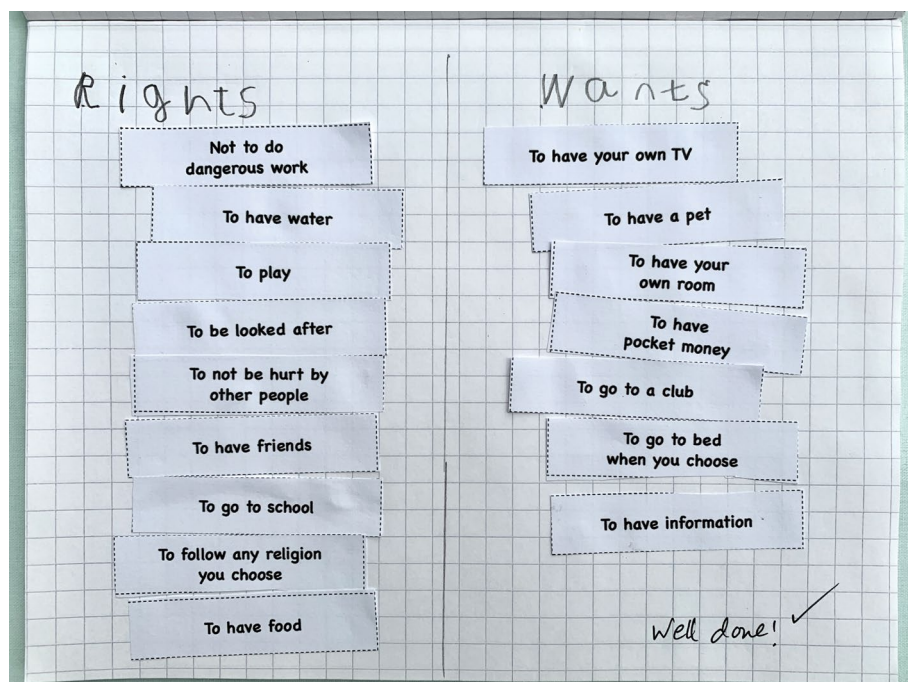 Rights
Not to do
dangerous work
To have water
To play
To be looked after
To not be hurt by
other people
To have friends
To go to school
To follow any religion
you choose
To have food
Wants
To have your own TV
To have a pet
To have your
own room
To have
pocket money
To go to a club
To go to bed
when you choose
To have information
Well done! ✓